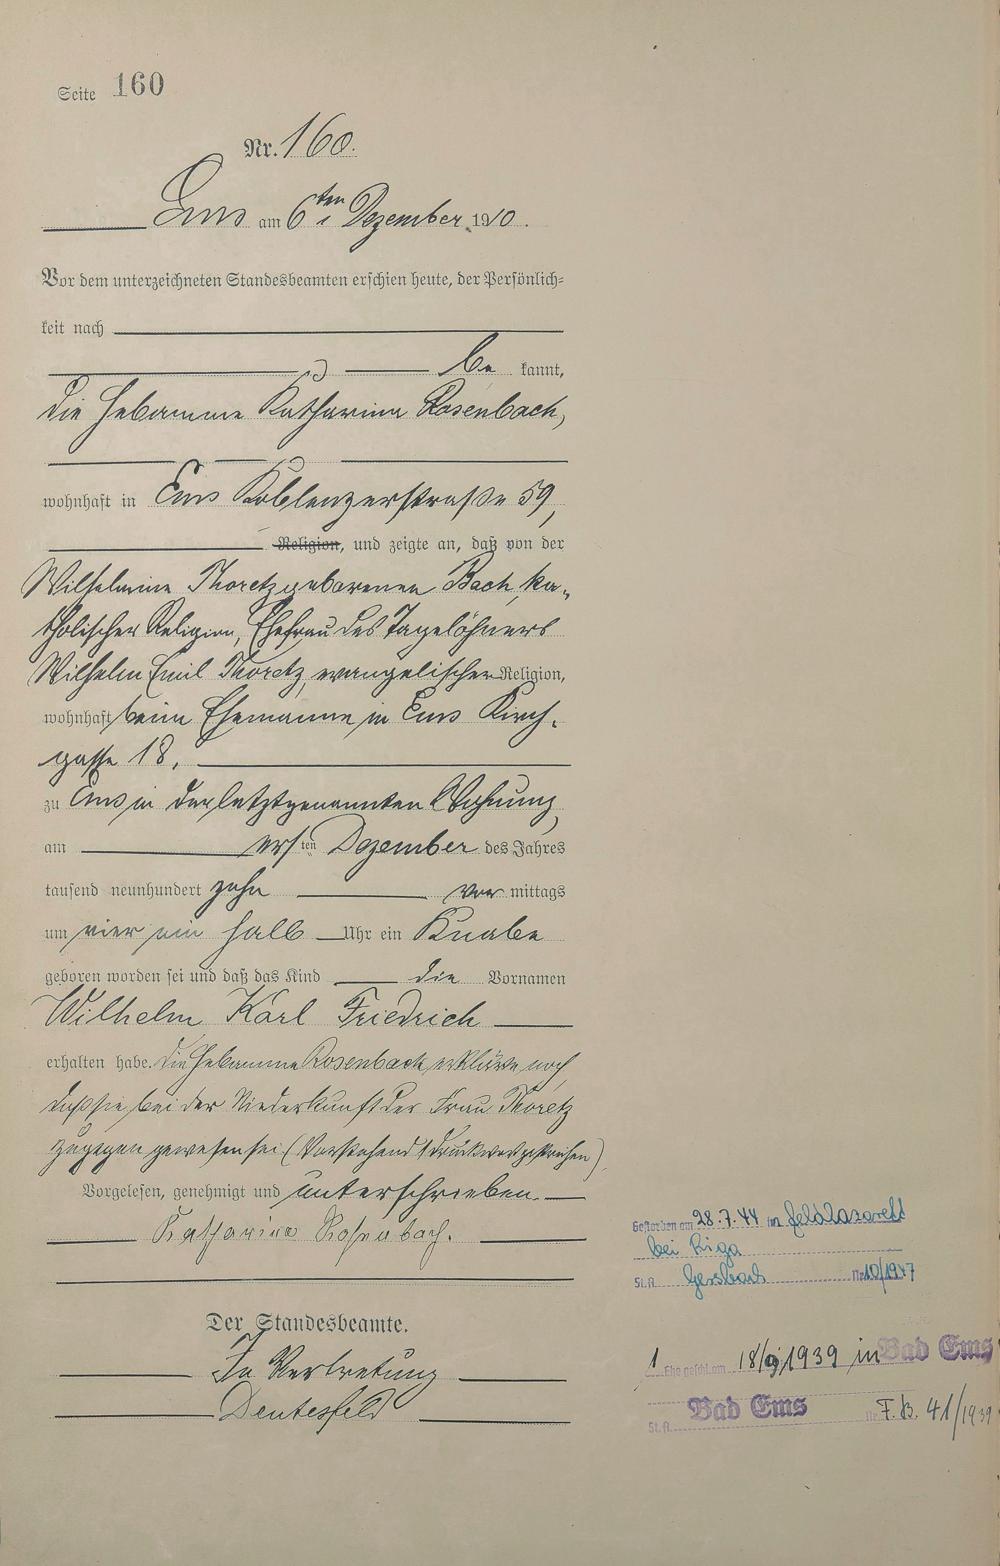 Seite 160
Nr. 160.
Ems am 6ten Dezember 1910.
Vor dem unterzeichneten Standesbeamten erschien heute, der Persönlich-
keit nach
be kannt,
die Hebamme Katharina Rosenbach,
wohnhaft in Ems Koblenzerstraße 59,
Religion, und zeigte an, daß von der
Wilhelmine Thoretz geborenen Bach, ka-
tholischer Religion, Ehefrau des Tagelöhners
Wilhelm Emil Thoretz, evangelischer Religion,
wohnhaft beim Ehemanne in Ems Kirch-
gasse 18,
zu Ems in der letztgenannten Wohnung,
am ersten Dezember des Jahres
tausend neunhundert zehn vor mittags
um vier ein halb Uhr ein Knabe
geboren worden sei und daß das Kind die Vornamen
Wilhelm Karl Friedrich
erhalten habe. Die Hebamme Rosenbach erklärte noch
daß sie bei der Niederkunft der Frau Thoretz
zugegen gewesen sei (Vorstehend 1 Druckwort gestrichen)
Vorgelesen, genehmigt und unterschrieben.
Katharina Rosenbach.
Der Standesbeamte.
In Vertretung
Gestorben am 28.7.44 im Feldlazarett
bei Riga
St.A. Nr. 10/1947
1. Ehe geschl. am 18/9 1939 in Bad Ems
St.A. Bad Ems Nr. F.B. 41/1939